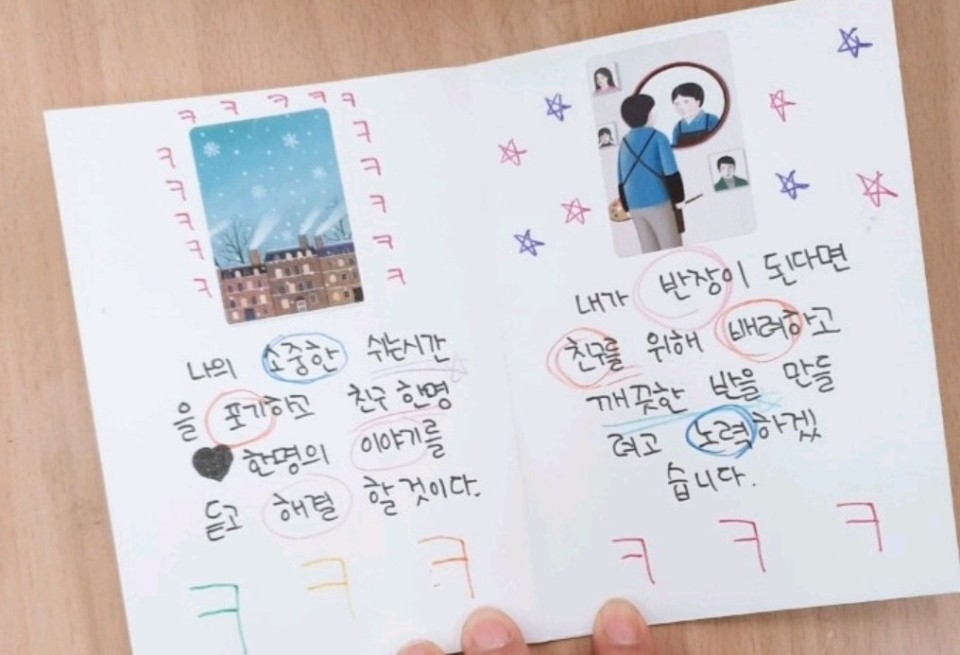 ㅋ ㅋ ㅋ ㅋ ㅋ
ㅋ ㅋ
ㅋ ㅋ
ㅋ ㅋ
ㅋ ㅋ
ㅋ ㅋ
나의 소중한 쉬는시간
을 포기하고 친구 한명
한명의 이야기를
듣고 해결 할 것이다.
ㅋ ㅋ ㅋ
내가 반장이 된다면
친구를 위해 배려하고
깨끗한 반을 만들
려고 노력하겠
습니다.
ㅋ ㅋ ㅋ